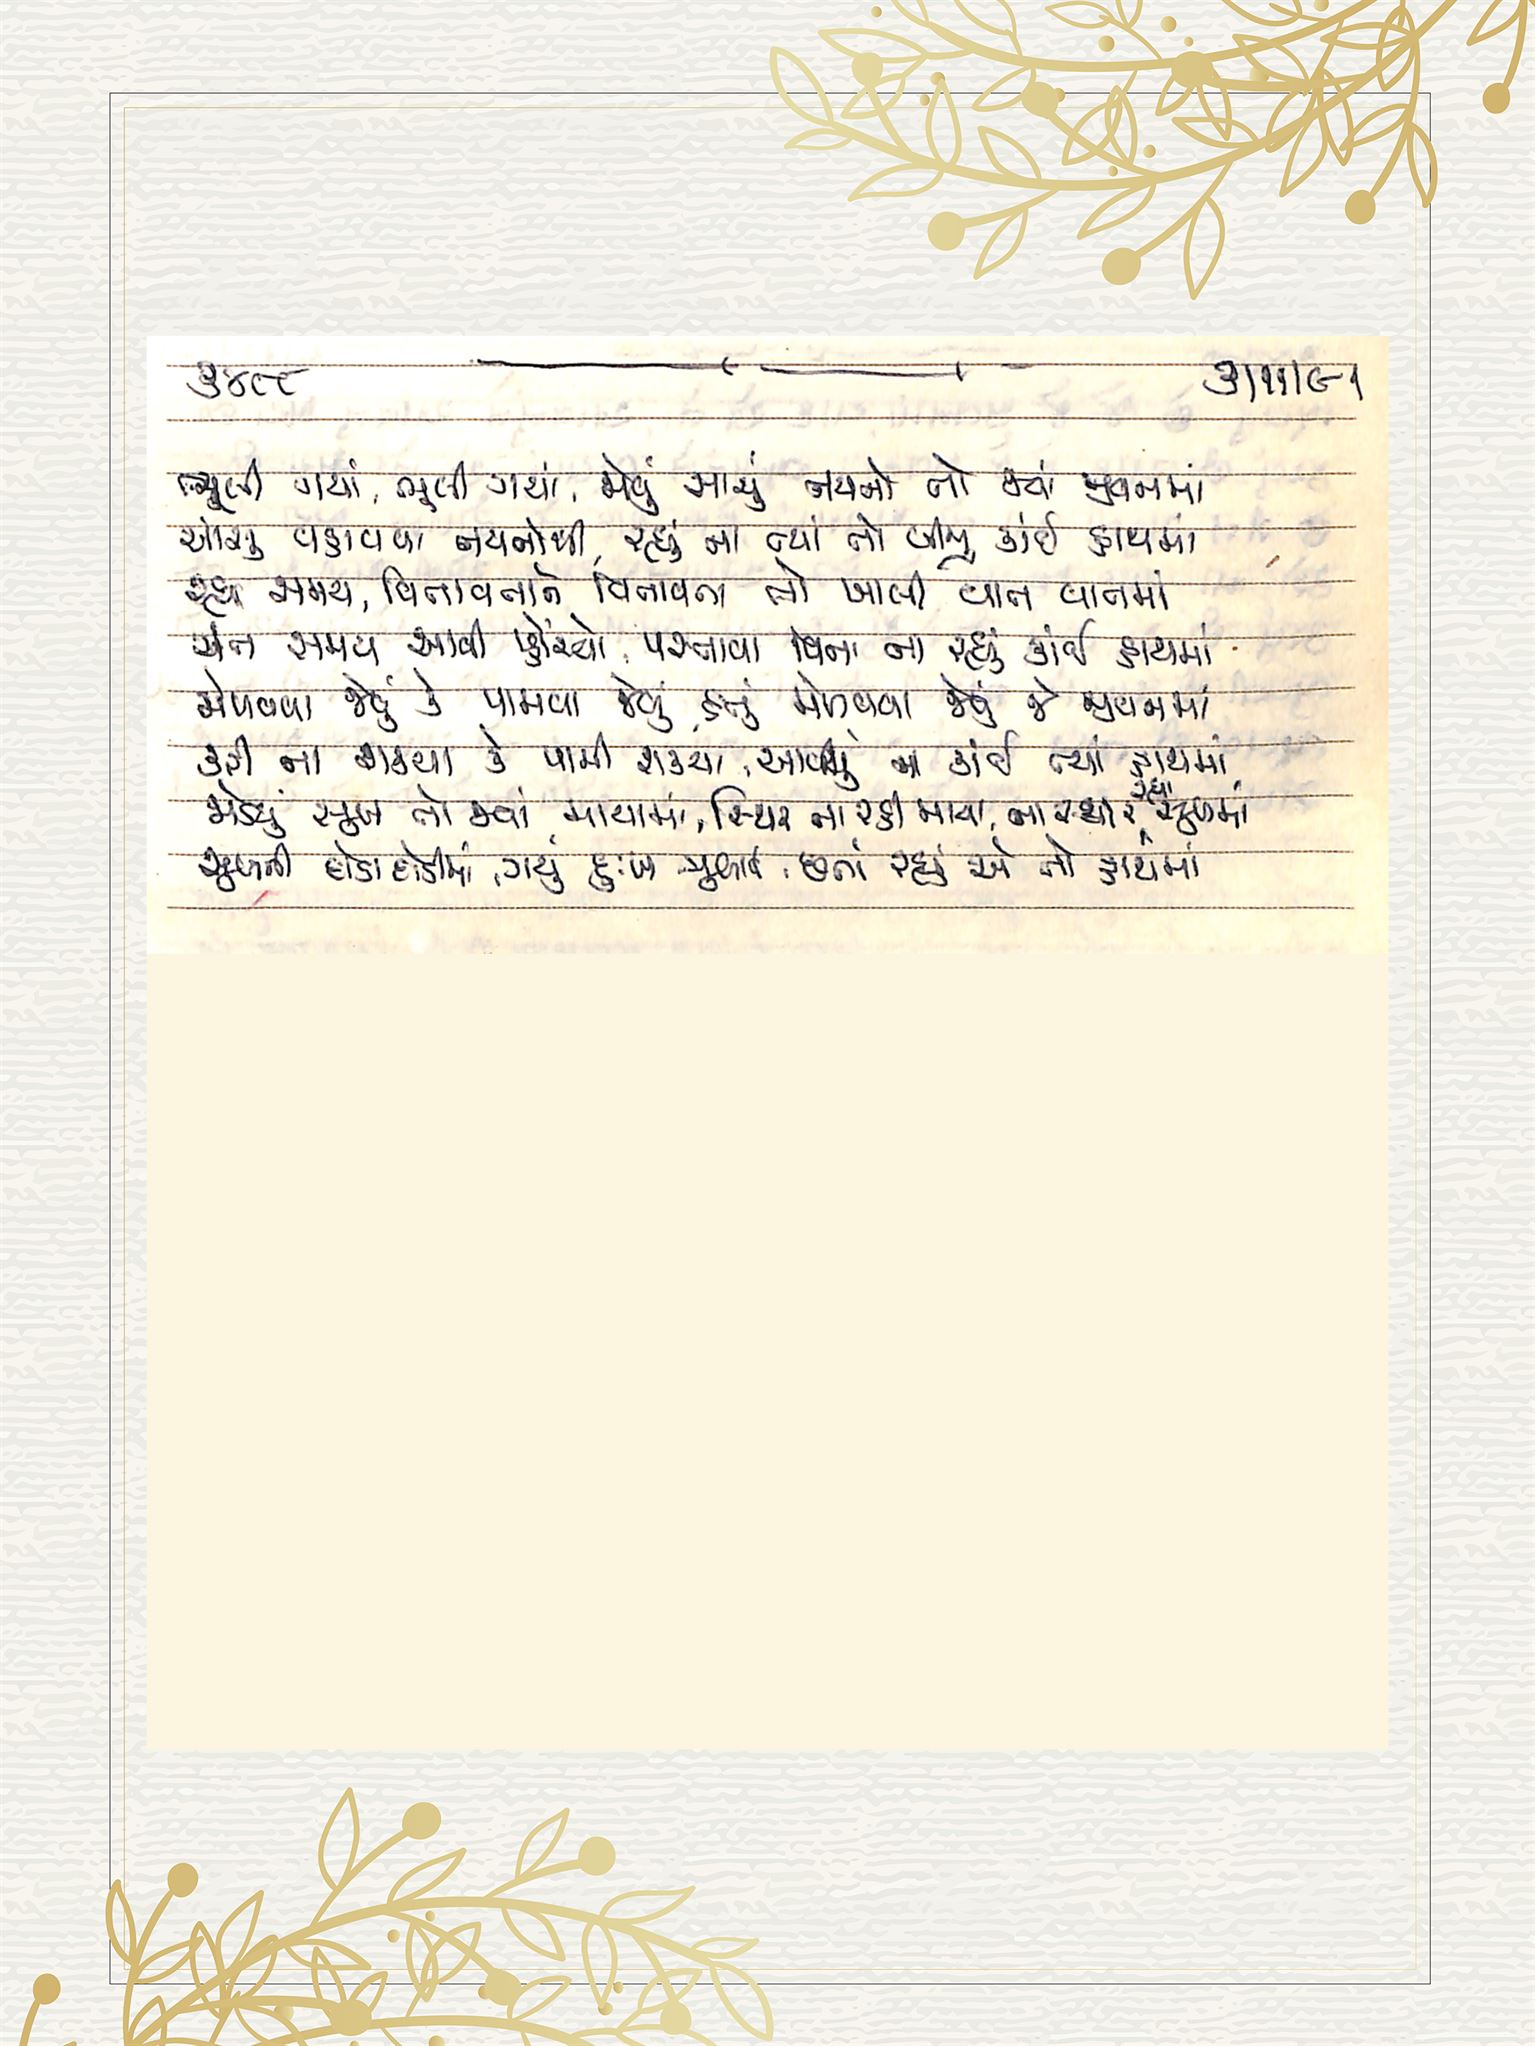 ૩૪૯૯ ૩/૧૧/૯૧
ભૂલી ગયાં, ભૂલી ગયાં, જોવું સાચું નયનો તો જ્યાં જીવનમાં
આંસુ વહાવવા નયનોથી, રહ્યું ના ત્યાં તો બીજુ કાંઈ હાથમાં
રહ્યા સમય, વિતાવતાને વિતાવતા તો ખાલી વાત વાતમાં
અંત સમય આવી પ્હોંચ્યો, પસ્તાવા વિના ના રહ્યું કાંઈ હાથમાં
મેળવવા જેવું કે પામવા જેવું, હતું મેળવવા જેવું જે જીવનમાં
કરી ના શક્યા કે પામી શક્યા, આવ્યું ના કાંઈ ત્યાં હાથમાં
જોડાયું સુખ તો જ્યાં માયામાં, સ્થિર ના રહી માયા, ના સ્થિર રહ્યા સુખમાં
સુખની દોડાદોડીમાં, ગયું દુઃખ ભુલાઈ, છતાં રહ્યું એ તો હાથમાં